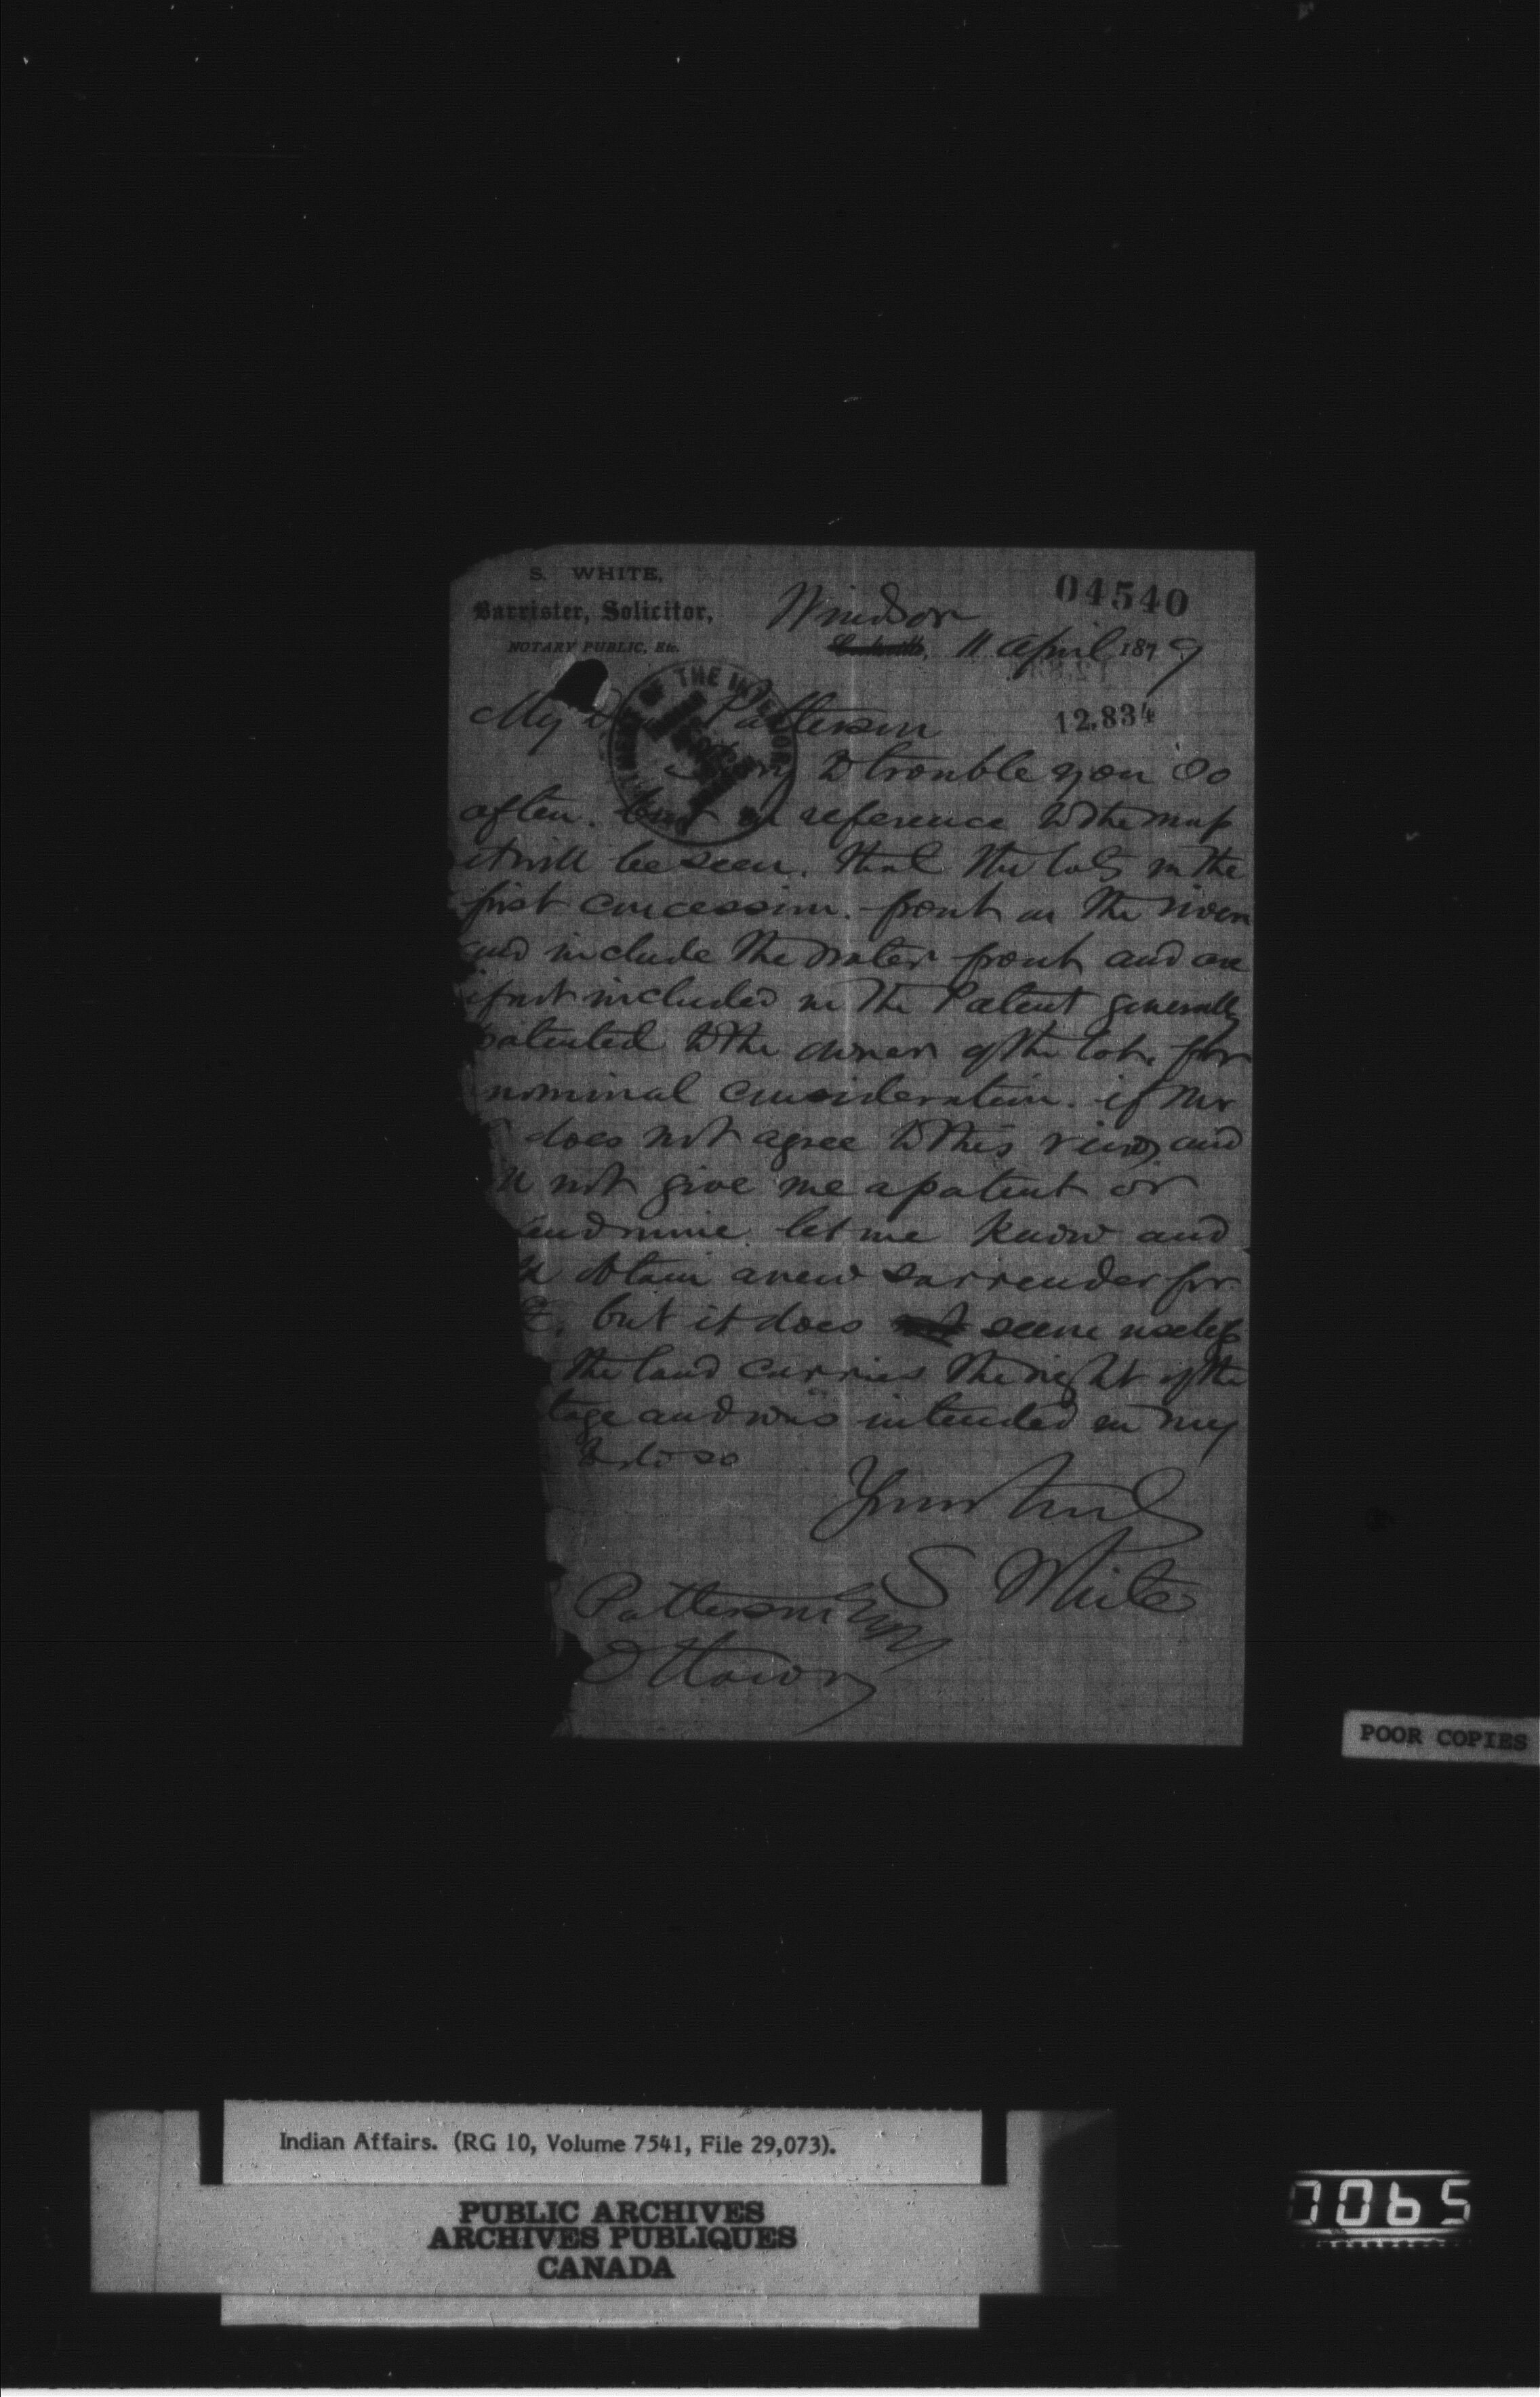 S. WHITE,
Barrister, Solicitor,
NOTARY PUBLIC, Etc.
04540
Windsor
11 April 1879
12,834
My Patterson
OF THE INTERIOR
to trouble you so
often. But in reference to the map
it will be seen. that the lots in the
first concession. front on the river
and include the water front and are
if not included in the Patent generally
patented to the owner of the lot. for
nominal consideration. if Mr
does not agree to this view, and
not give me a patent or
mine let me know and
obtain a new surrender for
but it does seem useless
the land carries the right of the
tage and was intended in my
to do so
Yours truly
S White
Patterson Esq
Ottawa
POOR COPIES
Indian Affairs. (RG 10, Volume 7541, File 29,073).
PUBLIC ARCHIVES
ARCHIVES PUBLIQUES
CANADA
0065